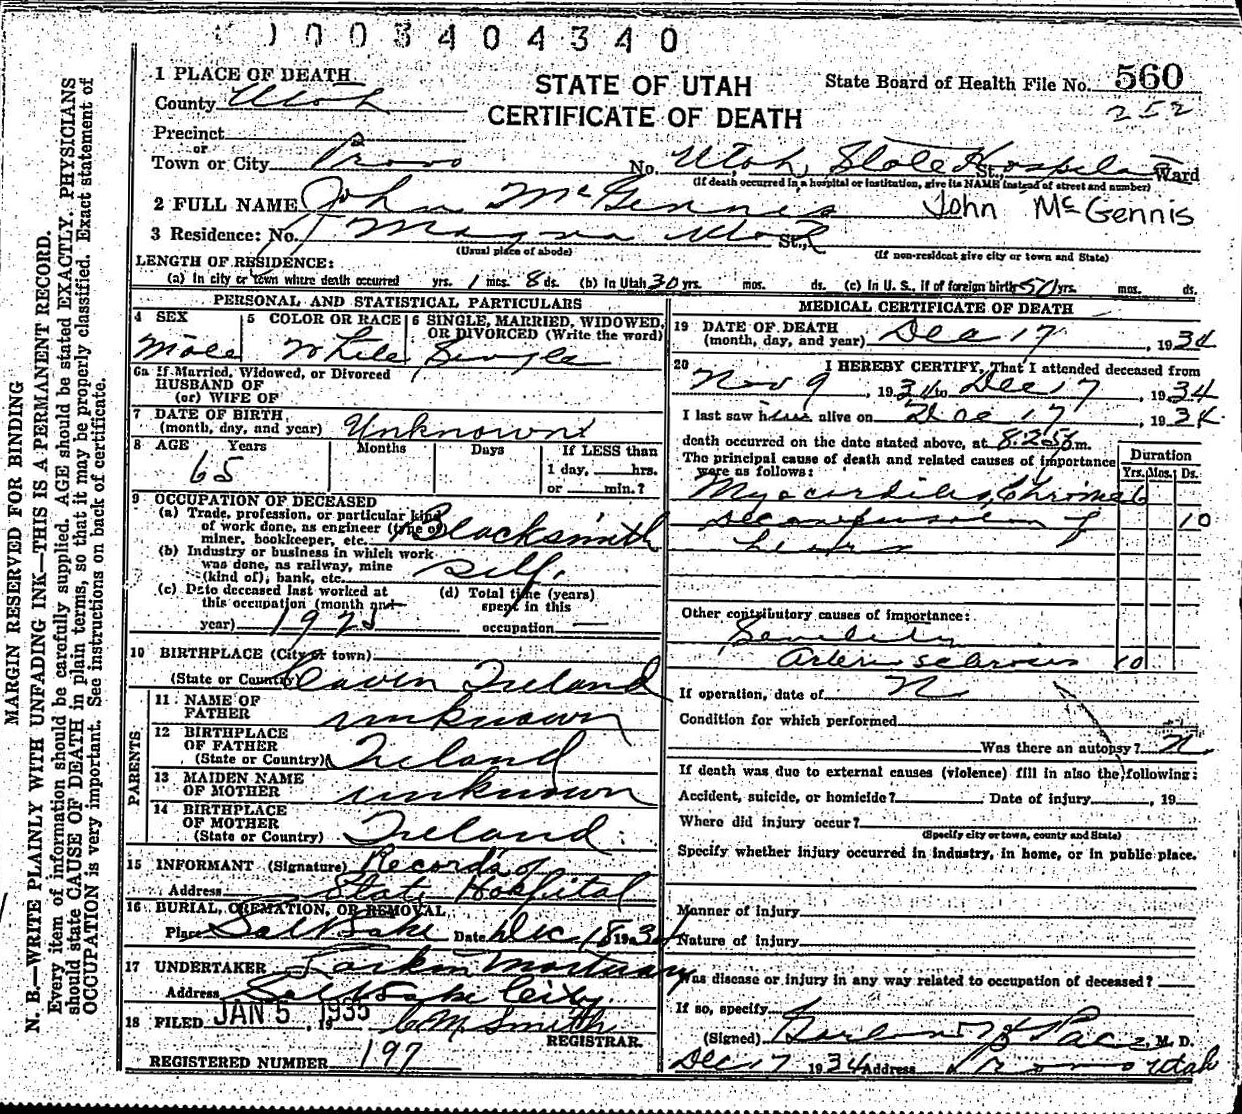 0034 0 4 3 4 0
MARGIN RESERVED FOR BINDING
N. B.—WRITE PLAINLY WITH UNFADING INK—THIS IS A PERMANENT RECORD.
Every item of information should be carefully supplied. AGE should be stated EXACTLY. PHYSICIANS
should state CAUSE OF DEATH in plain terms, so that it may be properly classified. Exact statement of
OCCUPATION is very important. See instructions on back of certificate.
STATE OF UTAH
CERTIFICATE OF DEATH
State Board of Health File No. 560
252
1 PLACE OF DEATH
County Utah
Precinct
or
Town or City Provo No. Utah State Hospital St. Ward
(If death occurred in a hospital or institution, give its NAME instead of street and number)
2 FULL NAME John McGennis John McGennis
3 Residence: No. Magna Utah St.,
(Usual place of abode) (If non-resident give city or town and State)
LENGTH OF RESIDENCE:
(a) In city or town where death occurred yrs. 1 mos. 8 ds. (b) In Utah 30 yrs. mos. ds. (c) In U. S., if of foreign birth 50 yrs. mos. ds.
PERSONAL AND STATISTICAL PARTICULARS
4 SEX Male
5 COLOR OR RACE White
6 SINGLE, MARRIED, WIDOWED,
OR DIVORCED (Write the word)
Single
6a If Married, Widowed, or Divorced
HUSBAND OF
(or) WIFE OF
7 DATE OF BIRTH
(month, day, and year) Unknown
8 AGE Years Months Days If LESS than
65 1 day, hrs.
or min.?
9 OCCUPATION OF DECEASED
(a) Trade, profession, or particular kind
of work done, as engineer (type of)
miner, bookkeeper, etc. Blacksmith
(b) Industry or business in which work
was done, as railway, mine
(kind of), bank, etc. self.
(c) Date deceased last worked at
this occupation (month and
year) 1925
(d) Total time (years)
spent in this
occupation —
10 BIRTHPLACE (City or town)
(State or Country) Caven Ireland
PARENTS
11 NAME OF
FATHER unknown
12 BIRTHPLACE
OF FATHER
(State or Country) Ireland
13 MAIDEN NAME
OF MOTHER unknown
14 BIRTHPLACE
OF MOTHER
(State or Country) Ireland
15 INFORMANT (Signature) Records of
Address State Hospital
16 BURIAL, CREMATION, OR REMOVAL
Place Salt Lake Date Dec 18 1934
17 UNDERTAKER Larkin Mortuary
Address Salt Lake City.
18 FILED JAN 5 1935, 19 C M Smith
REGISTRAR.
REGISTERED NUMBER 197
MEDICAL CERTIFICATE OF DEATH
19 DATE OF DEATH
(month, day, and year) Dec 17, 1934
20 I HEREBY CERTIFY, That I attended deceased from
Nov 9, 1934 to Dec 17, 1934
I last saw him alive on Dec 17, 1934.
death occurred on the date stated above, at m.
The principal cause of death and related causes of importance
were as follows:
Duration
Yrs. Mos. Ds.
Myocarditis, Chronic 6
decompensation of 10
heart
Other contributory causes of importance:
Senility
Arteriosclerosis 10
If operation, date of N
Condition for which performed
Was there an autopsy? N.
If death was due to external causes (violence) fill in also the following:
Accident, suicide, or homicide? Date of injury, 19
Where did injury occur?
(Specify city or town, county and State)
Specify whether injury occurred in industry, in home, or in public place.
Manner of injury
Nature of injury
Was disease or injury in any way related to occupation of deceased?
If so, specify
(Signed) Garland H Pace, M. D.
Dec 17 1934 Address Provo Utah